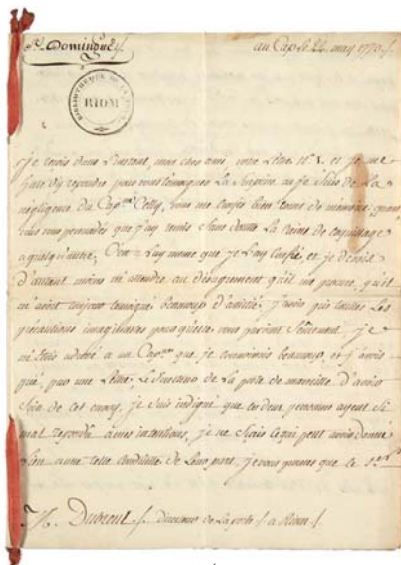 St. Domingue /.
au Cap le 22 may 1770 /.
BIBLIOTHEQUE DE LA VILLE
RIOM
Je reçois dans l'instant, mon cher ami votre Lettre N.o 1. et je me
hate d'y repondre pour vous temoigner La Surprise ou je Suis de La
négligence du Capne
vous me
vous vous persuadés que j'ay remis Sans doute La Caisse de coquillage
a quelqu'autre. C'en a Luy meme que je L'ay Confié et je devois
d'autant moins m'attendre au désagrement qu'il me procure, qu'il
m'avoit toujours temoigné beaucoup d'amitié; j'avois pris toutes Les
précautions imaginables pour qu'elle vous parvint Sûrement. je
m'étois adressé a un Capne que je connoissois beaucoup et j'avois
prié, par une Lettre, Le Directeur de La poste de marseille d'avoir
Soin de cet envoy, je suis indigné que ces deux personnes ayent Si
mal repondu a mes intentions, je ne Sçais ce qui peut avoir donné
Lieu a une telle conduitte de Leur part, je vous promets que le Sr.
M. Dubreul /. directeur de La poste /. a Riom /.